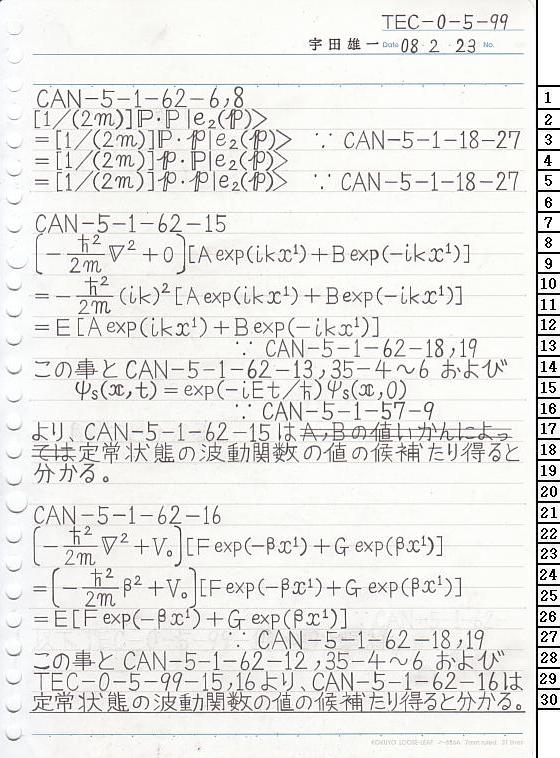 TEC-0-5-99
宇田雄一 Date 08・2・23 No.
CAN-5-1-62-6,8
[1/(2m)]ℙ・ℙ|e₂(𝕡)>
=[1/(2m)]ℙ・𝕡|e₂(𝕡)> ∵ CAN-5-1-18-27
=[1/(2m)]𝕡・ℙ|e₂(𝕡)>
=[1/(2m)]𝕡・𝕡|e₂(𝕡)> ∵ CAN-5-1-18-27
CAN-5-1-62-15
[-ħ²/2m ∇²+0][A exp(ikx¹)+B exp(-ikx¹)]
=-ħ²/2m (ik)²[A exp(ikx¹)+B exp(-ikx¹)]
=E[A exp(ikx¹)+B exp(-ikx¹)]
∵ CAN-5-1-62-18,19
この事とCAN-5-1-62-13,35-4~6 および
ψs(𝕩,t)=exp(-iEt/ħ)ψs(𝕩,0)
∵ CAN-5-1-57-9
より、CAN-5-1-62-15はA,Bの値いかんによっ
ては定常状態の波動関数の値の候補たり得ると
分かる。
CAN-5-1-62-16
[-ħ²/2m ∇²+V₀][F exp(-βx¹)+G exp(βx¹)]
=[-ħ²/2m β²+V₀][F exp(-βx¹)+G exp(βx¹)]
=E[F exp(-βx¹)+G exp(βx¹)]
∵ CAN-5-1-62-18,19
この事とCAN-5-1-62-12,35-4~6 および
TEC-0-5-99-15,16より、CAN-5-1-62-16は
定常状態の波動関数の値の候補たり得ると分かる。
1
2
3
4
5
6
7
8
9
10
11
12
13
14
15
16
17
18
19
20
21
22
23
24
25
26
27
28
29
30
KOKUYO LOOSE-LEAF ノ-836A 7mm ruled 31 lines